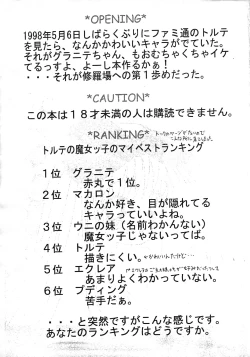 *OPENING*
1998年5月6日しばらくぶりにファミ通のトルテ
を見たら、なんかかわいいキャラがでていた。
それがグラニテちゃん、もおむちゃくちゃイケ
てるっすよ、よーし本作るかぁ！
・・・それが修羅場への第１歩めだった。
*CAUTION*
この本は１８才未満の人は購読できません。
*RANKING*
トルテの魔女ッ子のマイベストランキング
１位 グラニテ
赤丸で１位。
２位 マカロン
なんか好き、目が隠れてる
キャラっていいよね。
３位 ウニの妹（名前わかんない）
魔女ッ子じゃないってば。
４位 トルテ
描きにくい。
５位 エクレア
あまりよくわかっていない。
６位 プディング
苦手だぁ。
・・・と突然ですがこんな感じです。
あなたのランキングはどうですか。